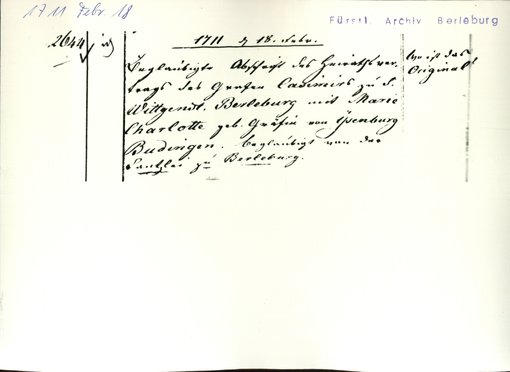 1711 Febr. 18
Fürstl. Archiv Berleburg
2644
1711 d 18. Febr.
Beglaubigte Abschrift des Heirathsver-
trags des Grafen Casimirs zu S.
Wittgenst. Berleburg mit Marie
Charlotte geb. Gräfin von Ysenburg
Budingen. beglaubigt von der
Canzlei zu Berleburg.
wo ist das
Original?